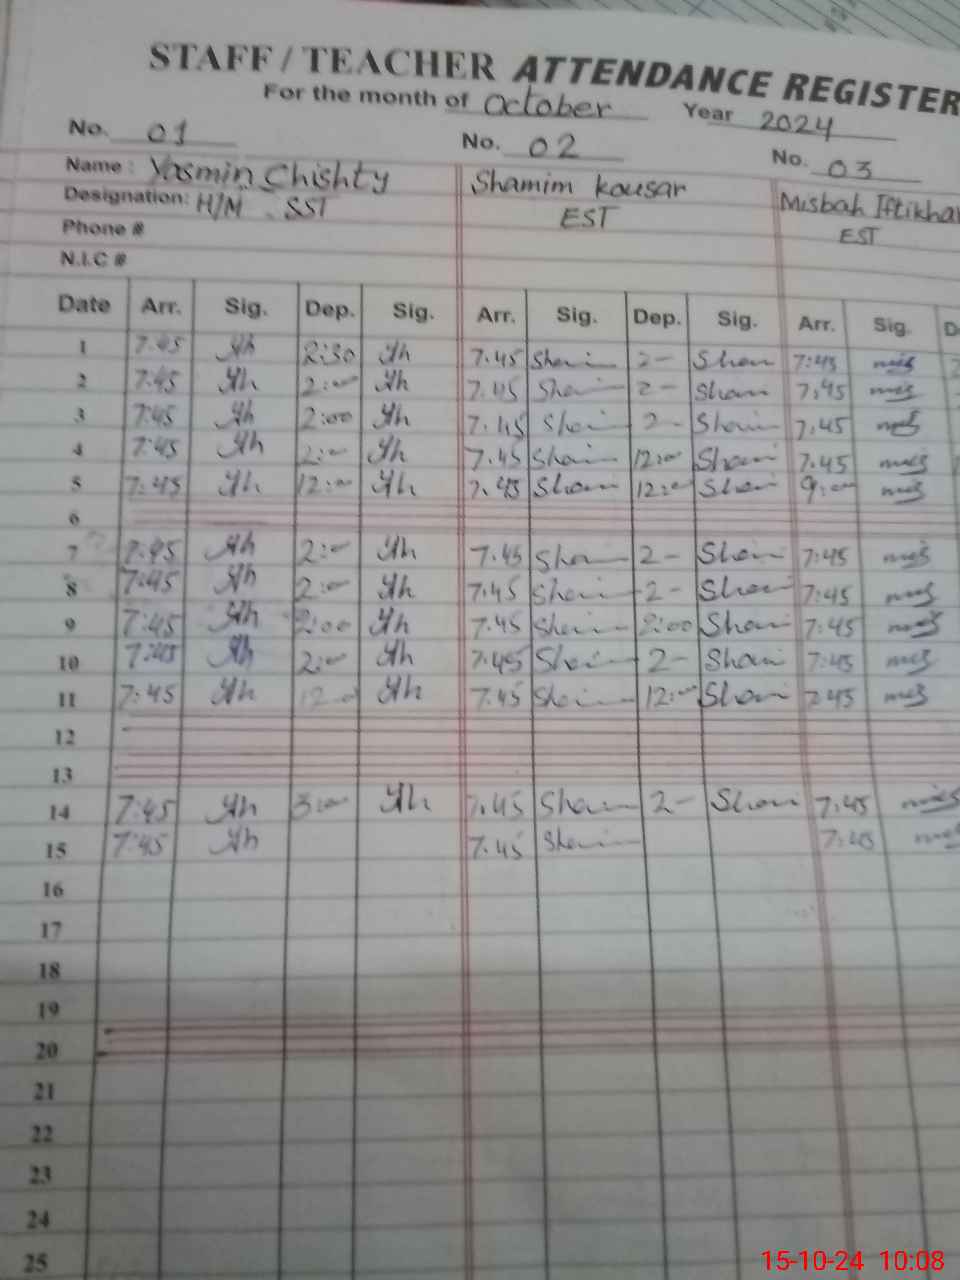 STAFF / TEACHER ATTENDANCE REGISTER
For the month of October Year 2024
No. 01 No. 02 No. 03
Name : Yasmin Chishty Shamim Kousar Misbah Iftikhar
Designation: H/M SST EST EST
Phone #
N.I.C #
Date Arr. Sig. Dep. Sig. Arr. Sig. Dep. Sig. Arr. Sig.
1 7:45 Yh 2:30 Yh 7.45 2- 7:45
2 7:45 Yh 2:00 Yh 7.45 2- 7,45
3 7:45 Yh 2:00 Yh 7.45 2- 7.45
4 7:45 Yh 2:00 Yh 7.45 12:00 7.45
5 7:45 Yh 12:00 Yh 7.45 12:00 9:00
6
7 7:45 Yh 2:00 Yh 7.45 2- 7:45
8 7:45 Yh 2:00 Yh 7.45 2- 7:45
9 7:45 Yh 2:00 Yh 7.45 2:00 7:45
10 7:45 Yh 2:00 Yh 7.45 2- 7:45
11 7:45 Yh 12:00 Yh 7.45 12:00 7.45
12
13
14 7:45 Yh 3:00 Yh 7.45 2- 7:45
15 7:45 Yh 7.45 7:45
16
17
18
19
20
21
22
23
24
25
15-10-24 10:08